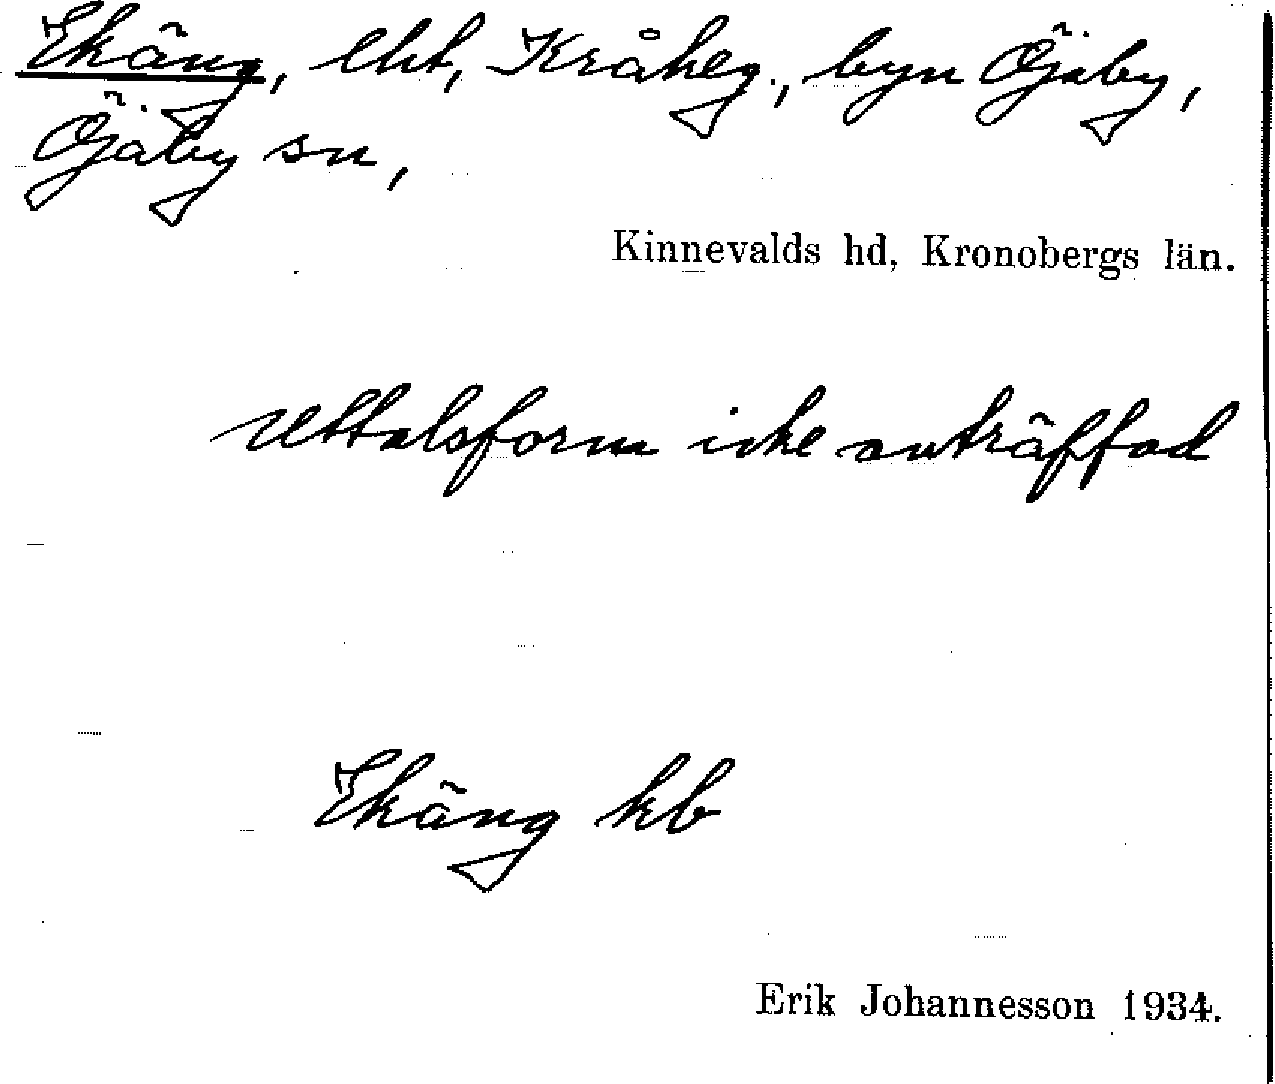 Ekäng, lht, Kråkeg., byn Öjaby,
Öjaby sn,
Kinnevalds hd, Kronobergs län.
Uttalsform icke anträffad
Ekäng kb
Erik Johannesson 1934.